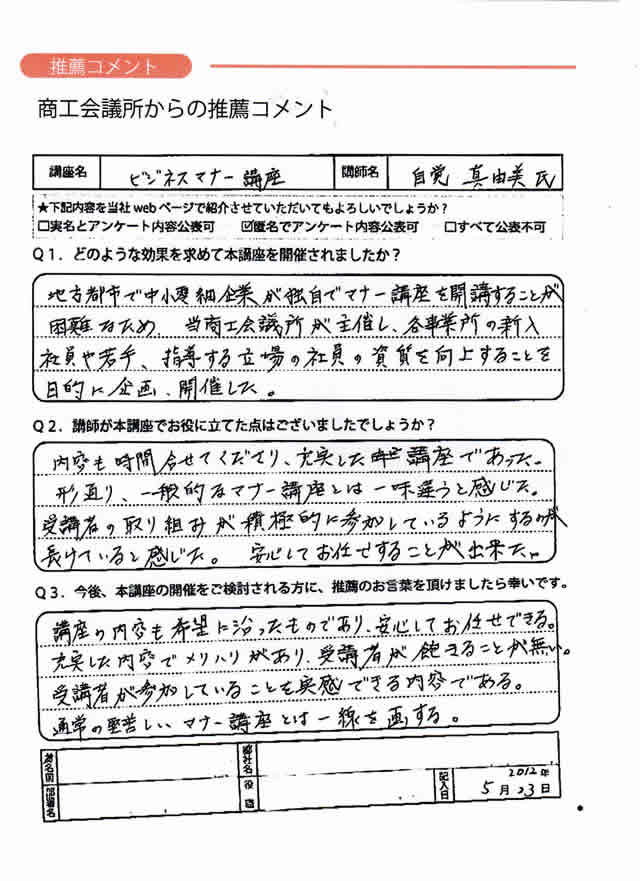 推薦コメント
商工会議所からの推薦コメント
講座名 ビジネスマナー講座 講師名 自覚 真由美 氏
★下記内容を当社webページで紹介させていただいてもよろしいでしょうか？
□実名とアンケート内容公表可 ☑匿名でアンケート内容公表可 □すべて公表不可
Q1．どのような効果を求めて本講座を開催されましたか？
地方都市で中小零細企業が独自でマナー講座を開講することが
困難なため、当商工会議所が主催し、各事業所の新入
社員や若手、指導する立場の社員の資質を向上することを
目的に企画、開催した。
Q2．講師が本講座でお役に立てた点はございましたでしょうか？
内容も時間合せてくださり、充実した講座であった。
形通り、一般的なマナー講座とは一味違うと感じた。
受講者の取り組みが積極的に参加しているようにするのが
長けていると感じた。 安心してお任せすることが出来た。
Q3．今後、本講座の開催をご検討される方に、推薦のお言葉を頂けましたら幸いです。
講座の内容も希望に沿ったものであり、安心してお任せできる。
充実した内容でメリハリがあり、受講者が飽きることが無い。
受講者が参加していることを実感できる内容である。
通常の堅苦しいマナー講座とは一線を画する。
御社名 2012年
部署名 役職 記入日 5月23日